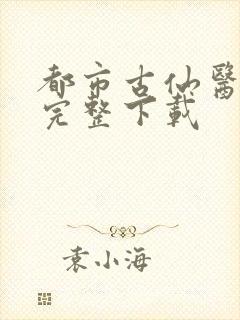 都市古仙醫
完整下載
袁小海